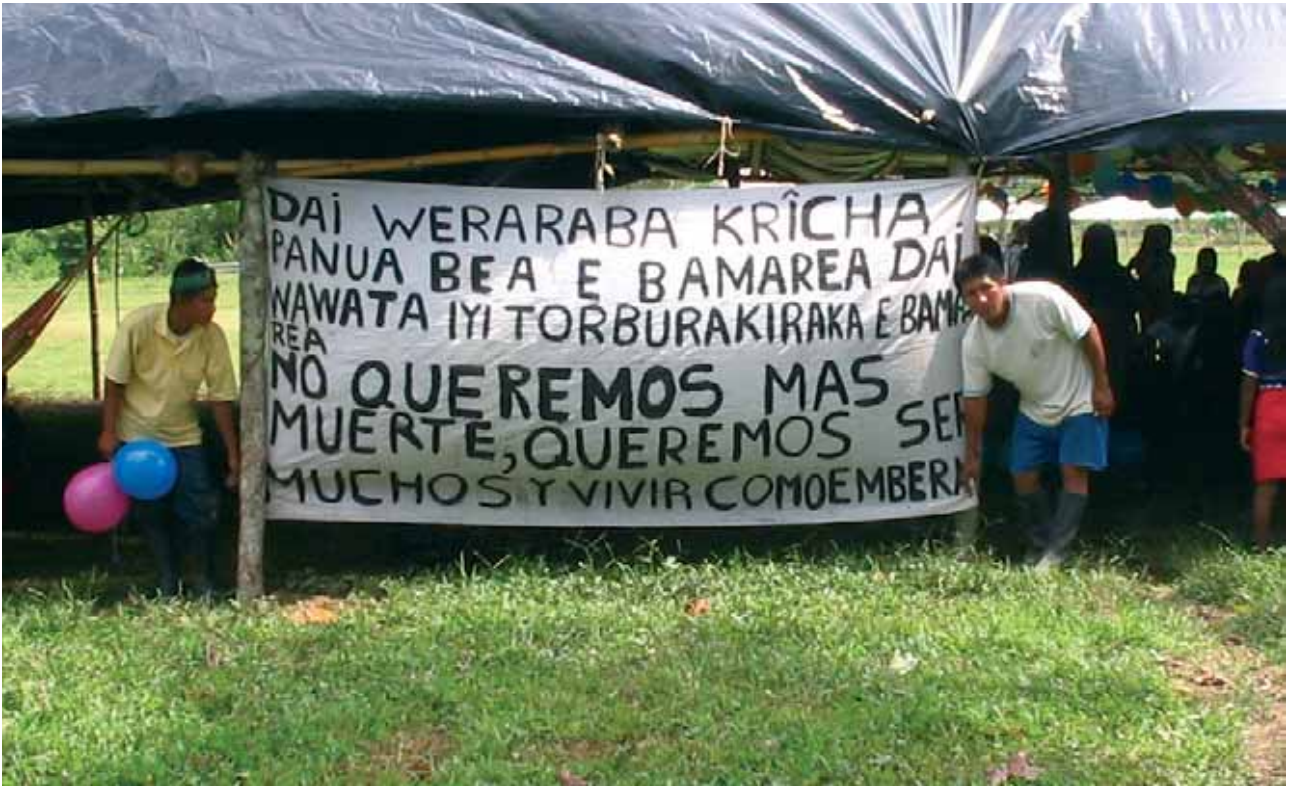 DAI WERARABA KRÎCHA
PANUA BEA E BAMAREA DAI
WAWATA IYI TORBURAKIRAKA E BAMA
REA
NO QUEREMOS MAS
MUERTE, QUEREMOS SER
MUCHOS Y VIVIR COMO EMBERA